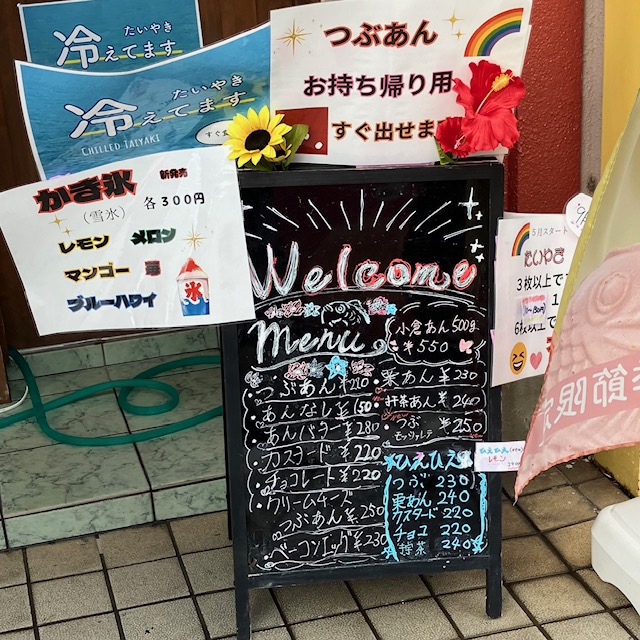 たいやき
冷えてます
たいやき
冷えてます
CHILLED TAIYAKI
つぶあん
お持ち帰り用
すぐ出せま
かき氷
新発売
(雪氷)
各300円
レモン
メロン
マンゴー
苺
ブルーハワイ
氷
Welcome
menu
小倉あん500g
¥550
つぶあん ¥210
あんなし ¥150
あんバター ¥280
カスタード ¥220
チョコレート ¥220
クリームチーズ
つぶあん ¥250
ベーコンエッグ ¥230
栗あん ¥230
抹茶あん ¥240
つぶ
モッツァレラ ¥250
ひえひえ
つぶ 230
栗あん 240
カスタード 220
チョコ 220
抹茶 240
ひえひえ
レモン
5月スタート
たいやき
3枚以上で
6枚以上で
季節限定